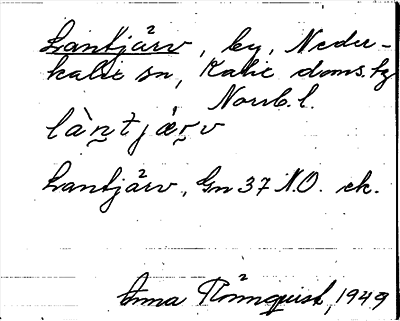 Lantjärv, by, Neder-
kalix sn, Kalix doms. hg
Norrb. l.
làntjä́rv
Lantjärv, Gn 37 N.O. ek.
Anna Rönnquist, 1949